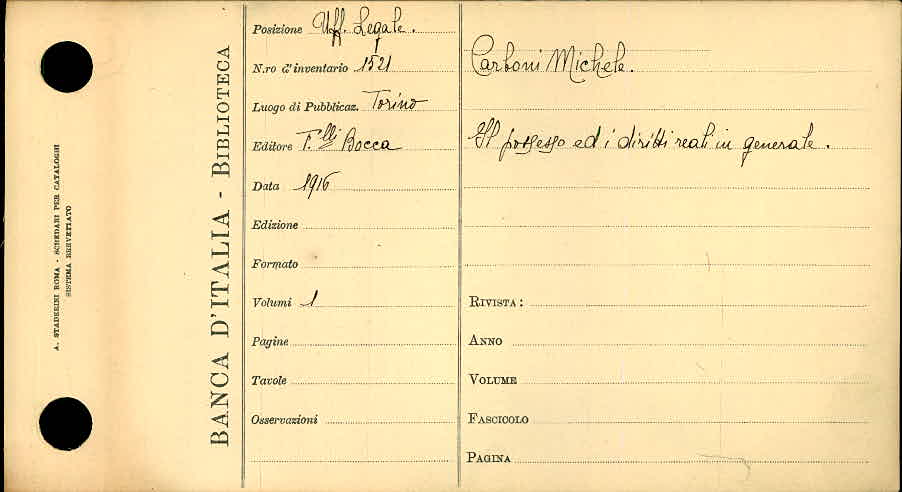 A. STADERINI ROMA - SCHEDARI PER CATALOGHI
SISTEMA BREVETTATO
BANCA D'ITALIA - BIBLIOTECA
Posizione Uff. Legale.
N.ro d'inventario 1521
Luogo di Pubblicaz. Torino
Editore F.lli Bocca
Data 1916
Edizione
Formato
Volumi 1
Pagine
Tavole
Osservazioni
Carboni Michele.
Il possesso ed i diritti reali in generale.
RIVISTA:
ANNO
VOLUME
FASCICOLO
PAGINA